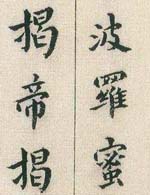 波羅蜜
揭帝揭